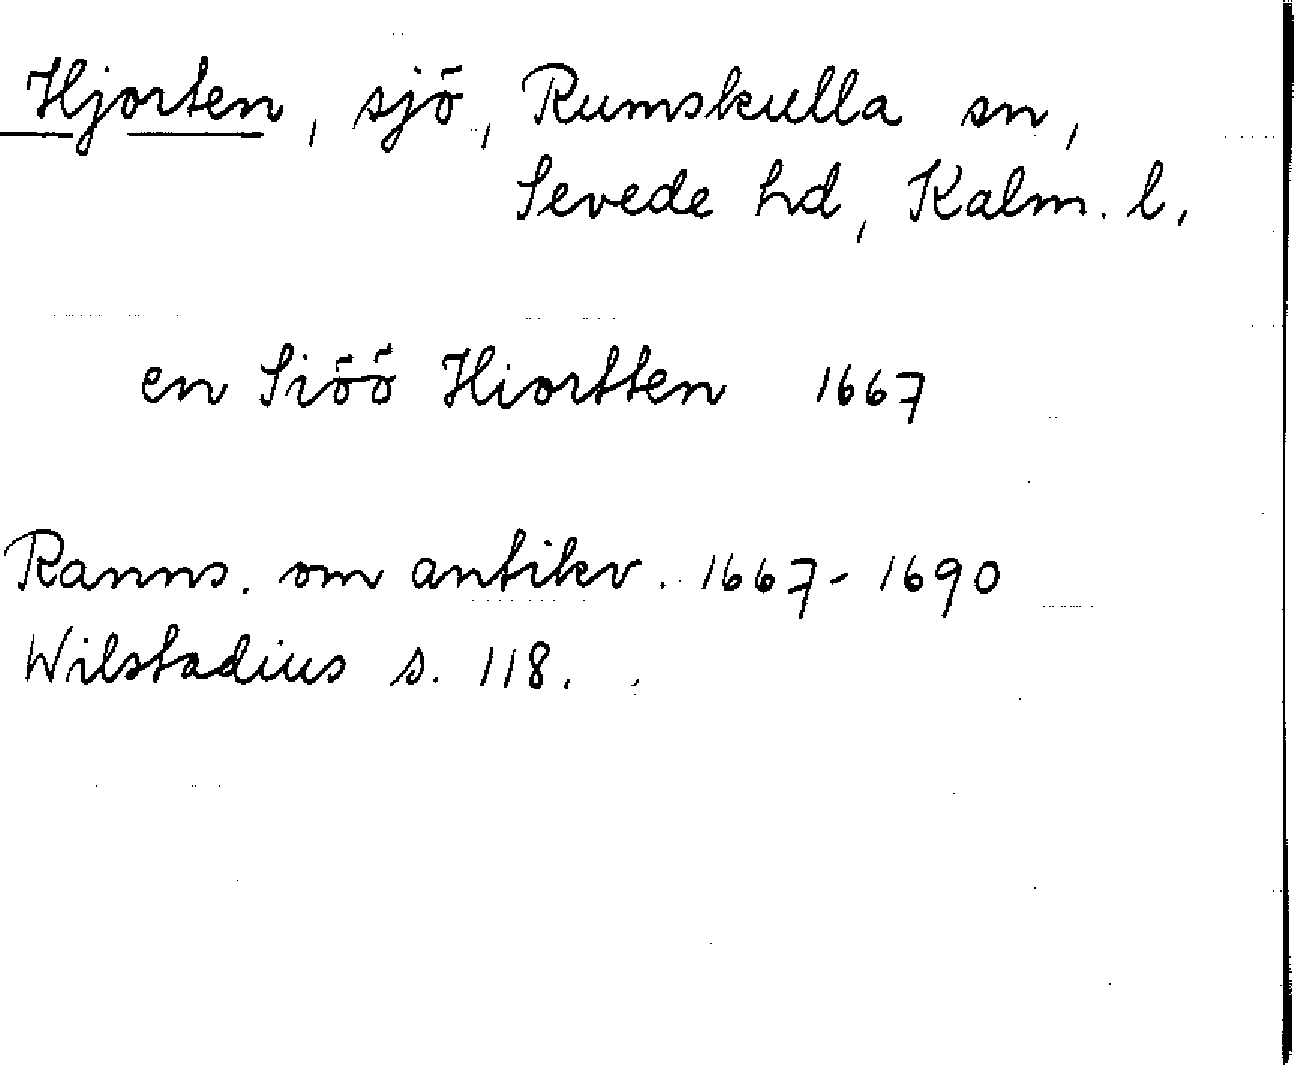 Hjorten, sjö, Rumskulla sn,
Sevede hd, Kalm. l.
en Siöö Hiortten 1667
Ranns. om antikv. 1667-1690
Wilstadius s. 118.